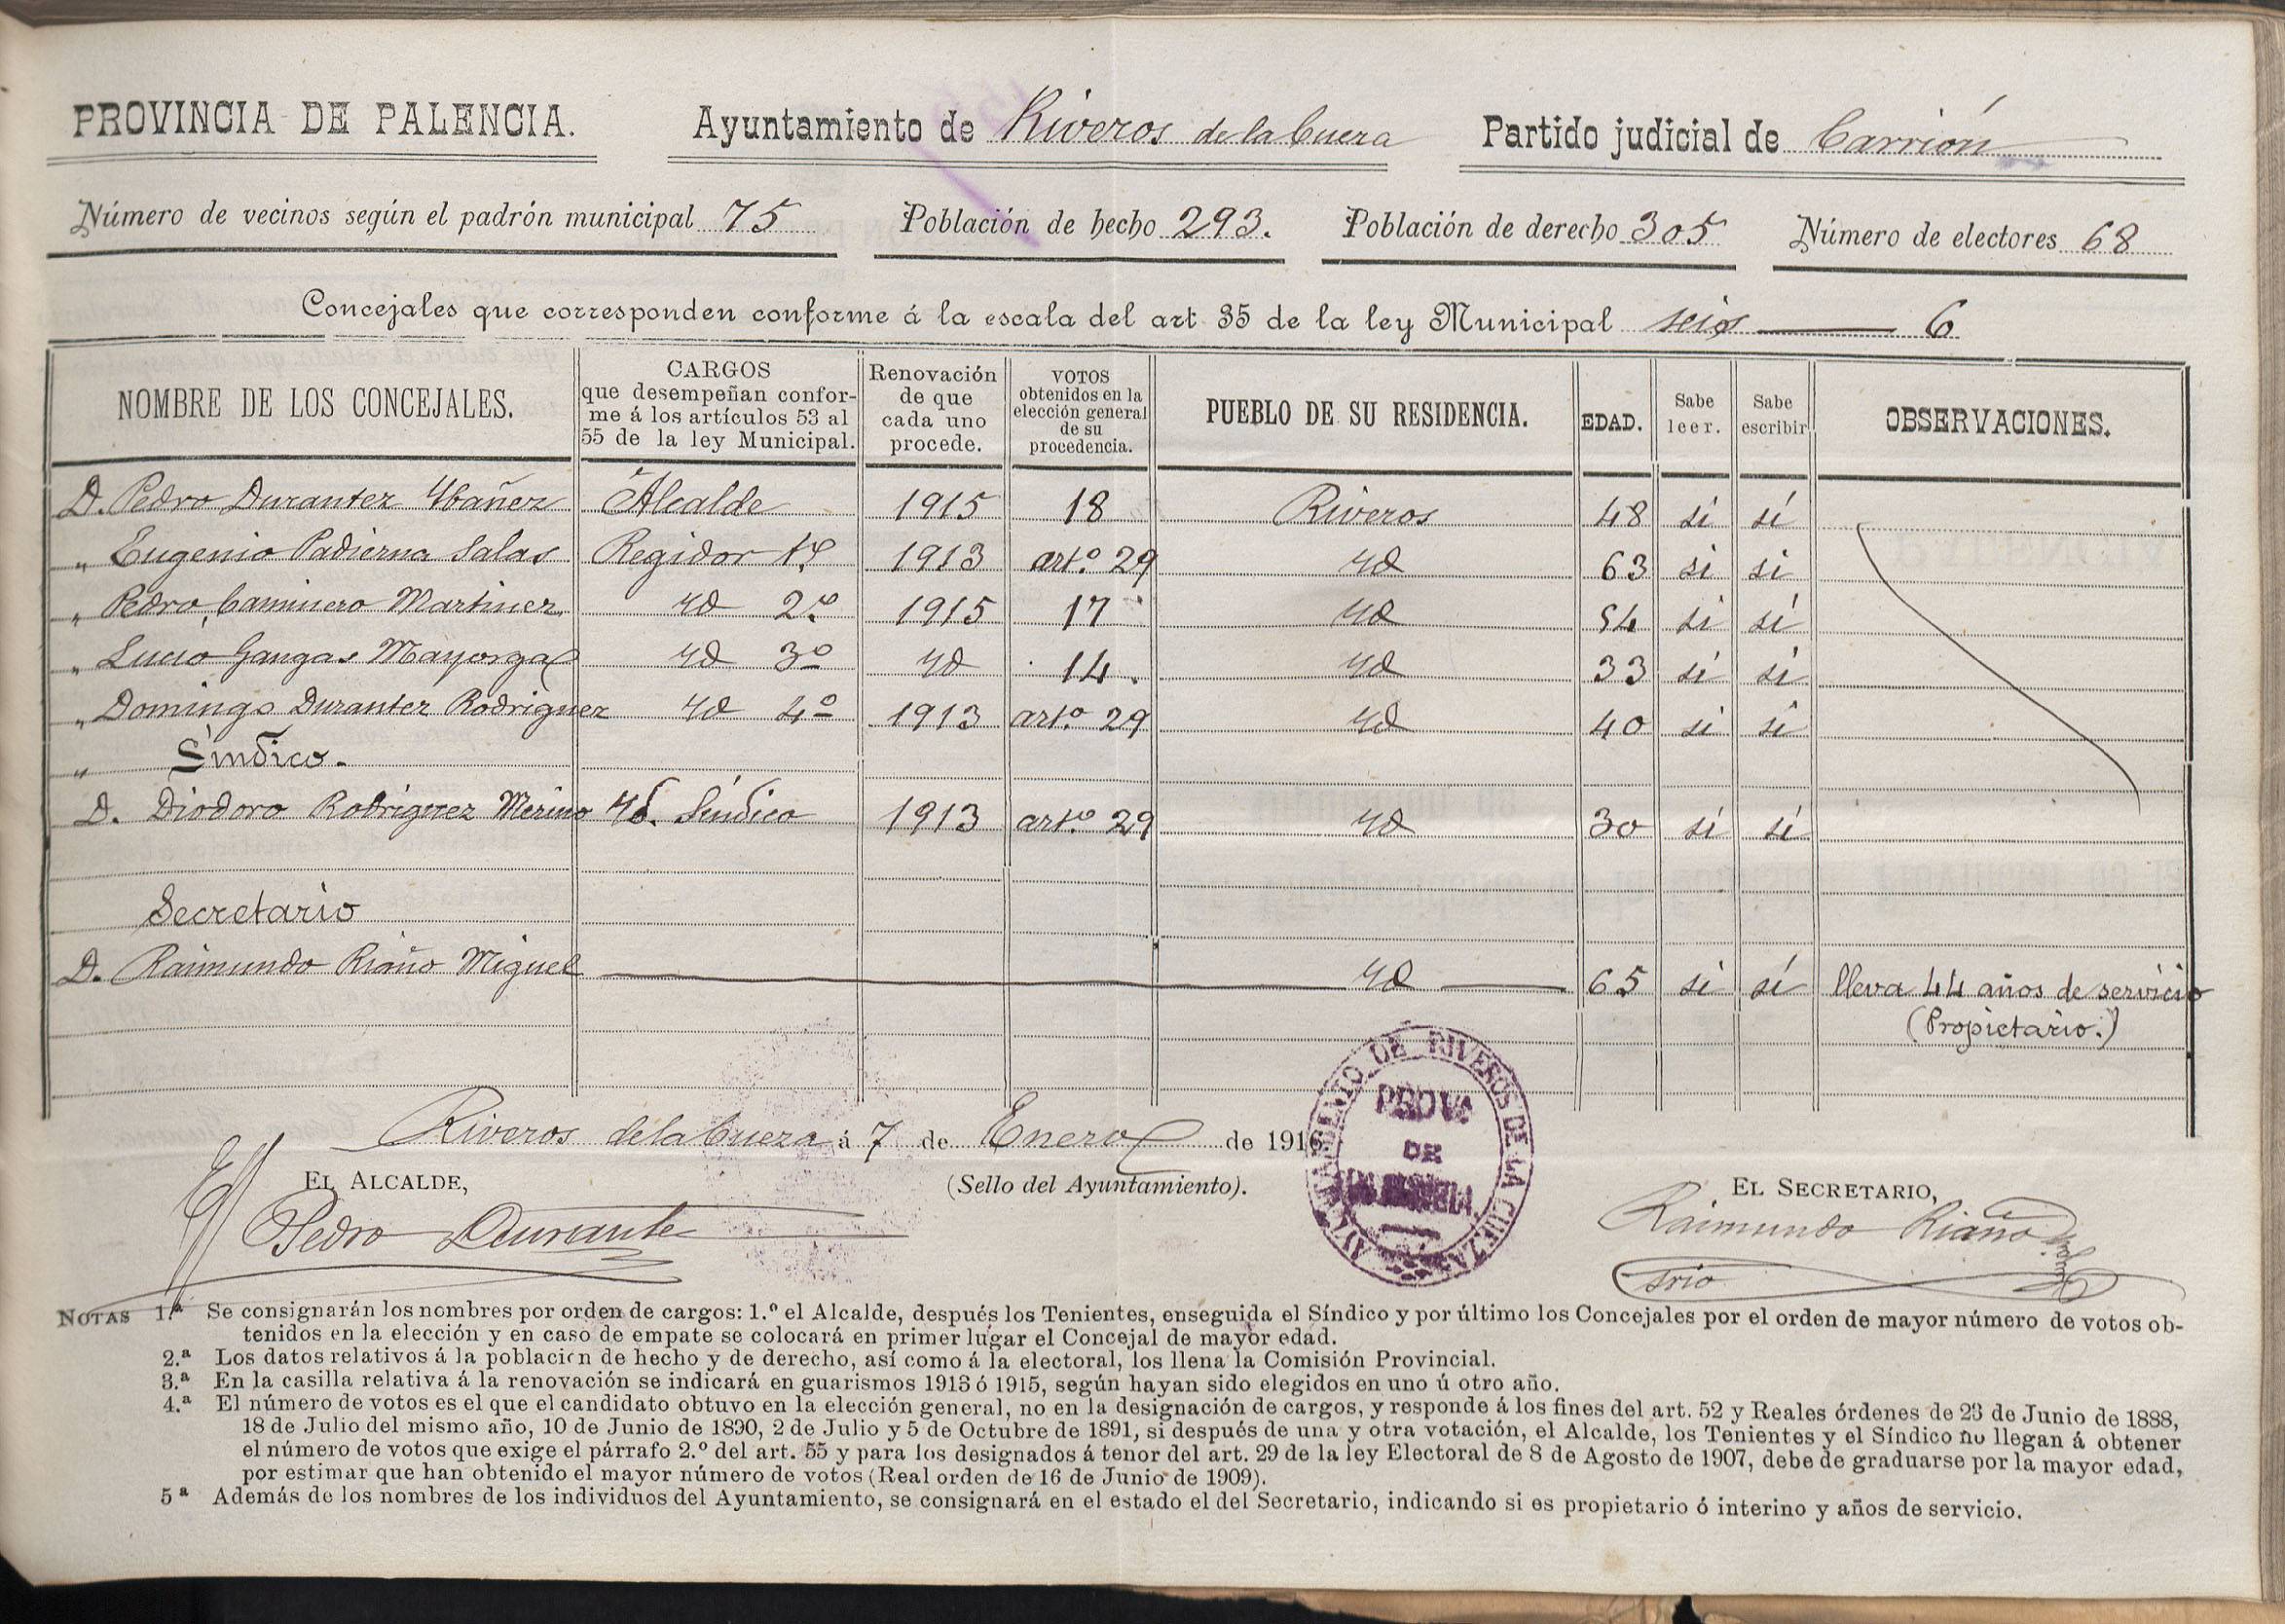 PROVINCIA DE PALENCIA. Ayuntamiento de Riveros de la Cueza Partido judicial de Carrión
Número de vecinos según el padrón municipal 75 Población de hecho 293. Población de derecho 305 Número de electores 68
Concejales que corresponden conforme á la escala del art 35 de la ley Municipal seis 6
NOMBRE DE LOS CONCEJALES. CARGOS que desempeñan conforme á los artículos 53 al 55 de la ley Municipal. Renovación de que cada uno procede. VOTOS obtenidos en la elección general de su procedencia. PUEBLO DE SU RESIDENCIA. EDAD. Sabe leer. Sabe escribir OBSERVACIONES.
D. Pedro Durantez Ybañez Alcalde 1915 18 Riveros 48 si sí
„ Eugenio Padierna Salas Regidor 1º 1913 artº 29 Yd 63 si si
„ Pedro Caminero Martinez Yd 2º 1915 17 Yd 54 si sí
„ Lucio Gangas Mayorga Yd 3º Yd 14. Yd 33 si si
„ Domingo Durantez Rodriguez Yd 4º 1913 artº 29 Yd 40 si si
„ Síndico.
D. Diodoro Rodriguez Merino Yd. Síndico 1913 artº 29 Yd 30 si si
Secretario
D. Raimundo Riaño Miguel Yd 65 si sí lleva 44 años de servicio
(Propietario.)
Riveros de la Cueza á 7 de Enero de 1916
EL ALCALDE, (Sello del Ayuntamiento). EL SECRETARIO,
Pedro Durante Raimundo Riaño
Srio
AYUNTAMIENTO DE RIVEROS DE LA CUEZA
PROVA
DE
NOTAS 1.ª Se consignarán los nombres por orden de cargos: 1.º el Alcalde, después los Tenientes, enseguida el Síndico y por último los Concejales por el orden de mayor número de votos ob-
tenidos en la elección y en caso de empate se colocará en primer lugar el Concejal de mayor edad.
2.ª Los datos relativos á la población de hecho y de derecho, así como á la electoral, los llena la Comisión Provincial.
3.ª En la casilla relativa á la renovación se indicará en guarismos 1913 ó 1915, según hayan sido elegidos en uno ú otro año.
4.ª El número de votos es el que el candidato obtuvo en la elección general, no en la designación de cargos, y responde á los fines del art. 52 y Reales órdenes de 23 de Junio de 1888,
18 de Julio del mismo año, 10 de Junio de 1890, 2 de Julio y 5 de Octubre de 1891, si después de una y otra votación, el Alcalde, los Tenientes y el Síndico no llegan á obtener
el número de votos que exige el párrafo 2.º del art. 55 y para los designados á tenor del art. 29 de la ley Electoral de 8 de Agosto de 1907, debe de graduarse por la mayor edad,
por estimar que han obtenido el mayor número de votos (Real orden de 16 de Junio de 1909).
5ª Además de los nombres de los individuos del Ayuntamiento, se consignará en el estado el del Secretario, indicando si es propietario ó interino y años de servicio.